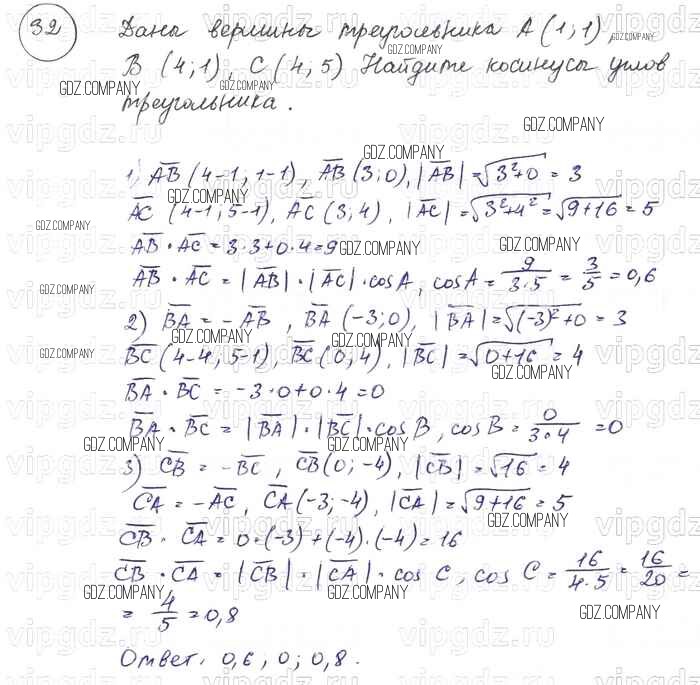 32 Даны вершины треугольника A(1;1),
B (4;1), C (4;5) Найдите косинусы углов
треугольника.
1) AB (4-1, 1-1), AB (3;0), |AB| = √3²+0 = 3
AC (4-1; 5-1), AC (3; 4), |AC| = √3²+4² = √9+16 = 5
AB · AC = 3·3+0·4=9
AB · AC = |AB| · |AC| · cos A, cos A = 9/3·5 = 3/5 = 0,6
2) BA = -AB, BA (-3;0), |BA| = √(-3)²+0 = 3
BC (4-4, 5-1), BC (0; 4), |BC| = √0+16 = 4
BA · BC = -3·0+0·4=0
BA · BC = |BA| · |BC| · cos B, cos B = 0/3·4 = 0
3) CB = -BC, CB (0; -4), |CB| = √16 = 4
CA = -AC, CA (-3; -4), |CA| = √9+16 = 5
CB · CA = 0·(-3)+(-4)·(-4)=16
CB · CA = |CB| · |CA| · cos C, cos C = 16/4·5 = 16/20 =
= 4/5 = 0,8
Ответ. 0,6; 0; 0,8.
GDZ.COMPANY
vipgdz.ru